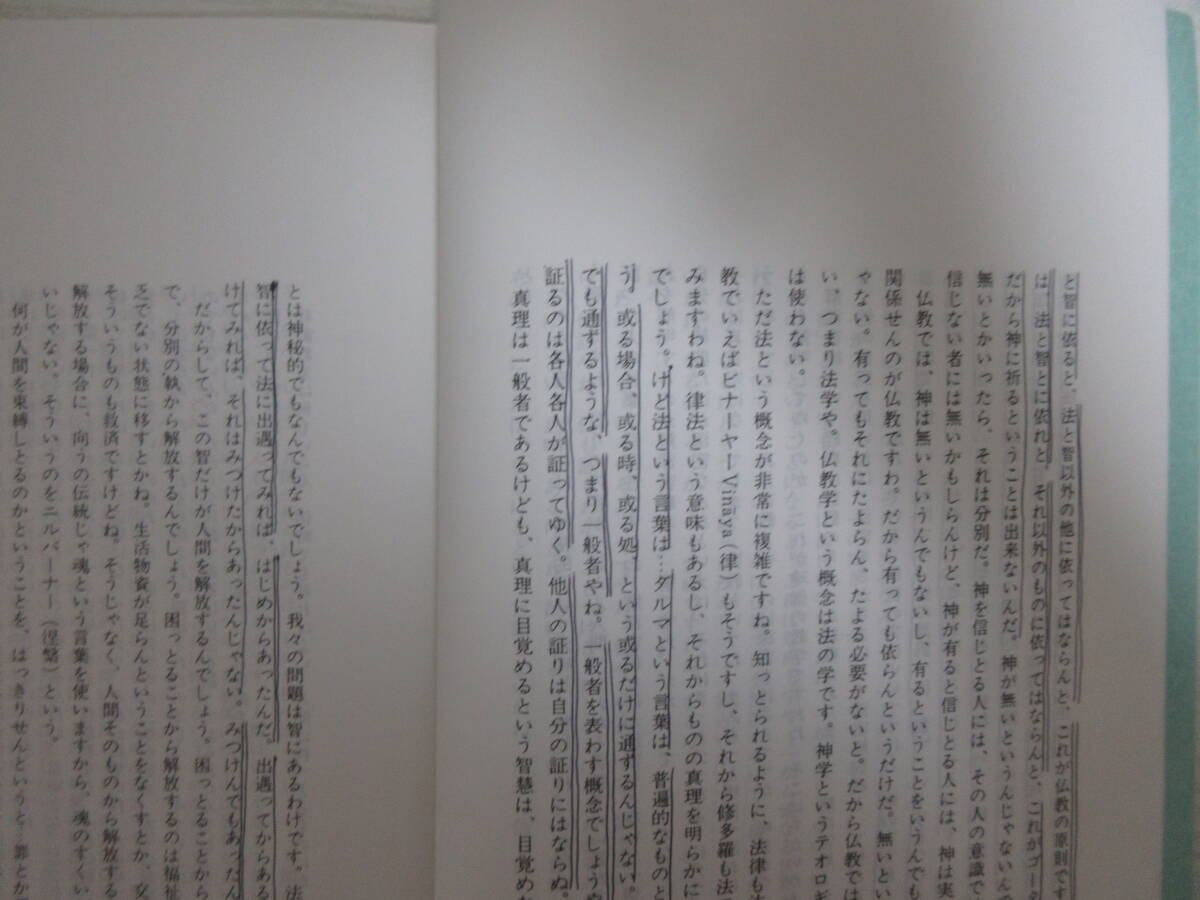 と智に依ると、法と智以外の他に依ってはならんと、これが仏教の原則です
は、法と智とに依れと、それ以外のものに依ってはならんと、これがゴー
だから神に祈るということは出来ないんだ。神が無いというんじゃないんで
無いとかいったら、それは分別だ。神を信じとる人には、その人の意識で
信じない者には無いかもしらんけど、神が有ると信じとる人には、神は実
仏教では、神は無いというんでもないし、有るということをいうんでも
関係せんのが仏教ですわ。だから有っても依らんというだけだ。無いとい
ゃない。有ってもそれにたよらん、たよる必要がないと。だから仏教では
い、つまり法学や。仏教学という概念は法の学です。神学というテオロギ
は使わない。
ただ法という概念が非常に複雑ですね。知っとられるように、法律も法
教でいえばビナーヤーVināya（律）もそうですし、それから修多羅も法
みますわね。律法という意味もあるし、それからものの真理を明らかに
でしょう。けど法という言葉は…ダルマという言葉は、普遍的なものと
う。或る場合、或る時、或る処、という或るだけに通ずるんじゃない。
でも通ずるような、つまり一般者やね。一般者を表わす概念でしょうや
証るのは各人各人が証ってゆく。他人の証りは自分の証りにはならぬ。
真理は一般者であるけども、真理に目覚めるという智慧は、目覚め
とは神秘的でもなんでもないでしょう。我々の問題は智にあるわけです。法
智に依って法に出遇ってみれば、はじめからあったんだ。出遇ってからある
けてみれば、それはみつけたからあったんじゃない。みつけんでもあったん
だからして、この智だけが人間を解放するんでしょう。困っとることから
で、分別の執から解放するんでしょう。困っとることから解放するのは福祉
乏でない状態に移すとかね。生活物資が足らんということをなくすとか、交
そういうものも救済ですけどね。そうじゃなく、人間そのものから解放する
解放する場合に、向うの伝統じゃ魂という言葉を使いますから、魂のすくい
いじゃない。そういうのをニルバーナー（涅槃）という。
何が人間を束縛しとるのかということを、はっきりせんというと…罪とか